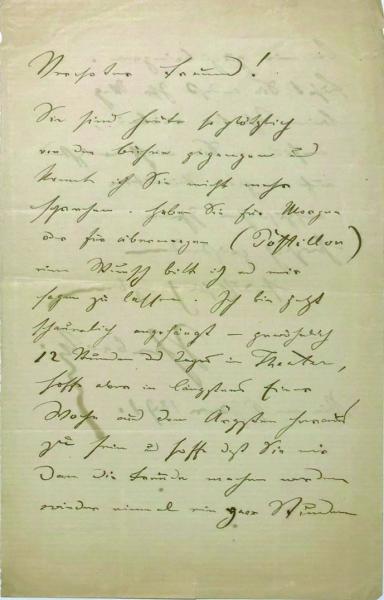 Verehrter Freund!
Sie sind heute so plötzlich
von der Bühne gegangen u
konnte ich Sie nicht mehr
sprechen. Haben Sie für Morgen
oder für übermorgen (Postillon)
einen Wunsch bitte ich es mir
sagen zu lassen. Ich bin jetzt
angehängt – gewöhnlich
12 Stunden des Tages im Theater,
hoffe aber in längstens einer
Woche aus dem Ärgsten heraus
zu sein u hoffe daß Sie mir
dann die Freude machen werden
wieder einmal ein paar Stunden